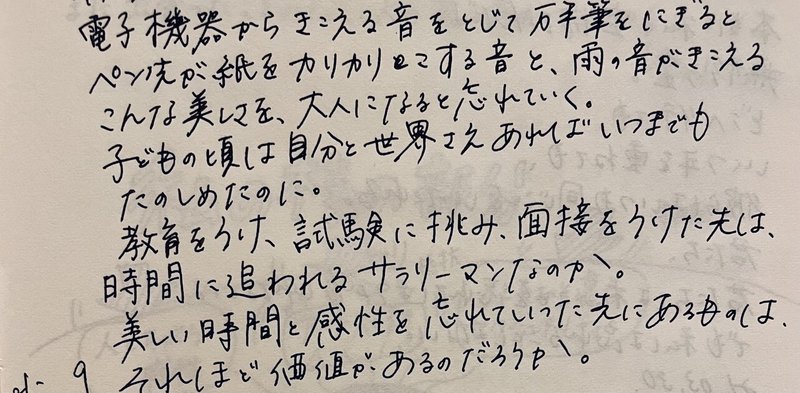 電子機器からきこえる音をとじて万年筆をにぎると
ペン先が紙をカリカリとこする音と、雨の音がきこえる
こんな美しさを、大人になると忘れていく。
子どもの頃は自分と世界さえあればいつまでも
たのしめたのに。
教育をうけ、試験に挑み、面接をうけた先は、
時間に追われるサラリーマンなのか。
美しい時間と感性を忘れていった先にあるものは、
それほど価値があるのだろうか。